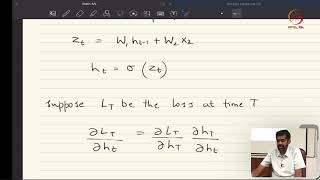 z_t = W_1 h_{t-1} + W_2 x_2
h_t = σ (z_t)
Suppose L_T be the loss at time T
∂L_T / ∂h_t = ∂L_T / ∂h_T ∂h_T / ∂h_t